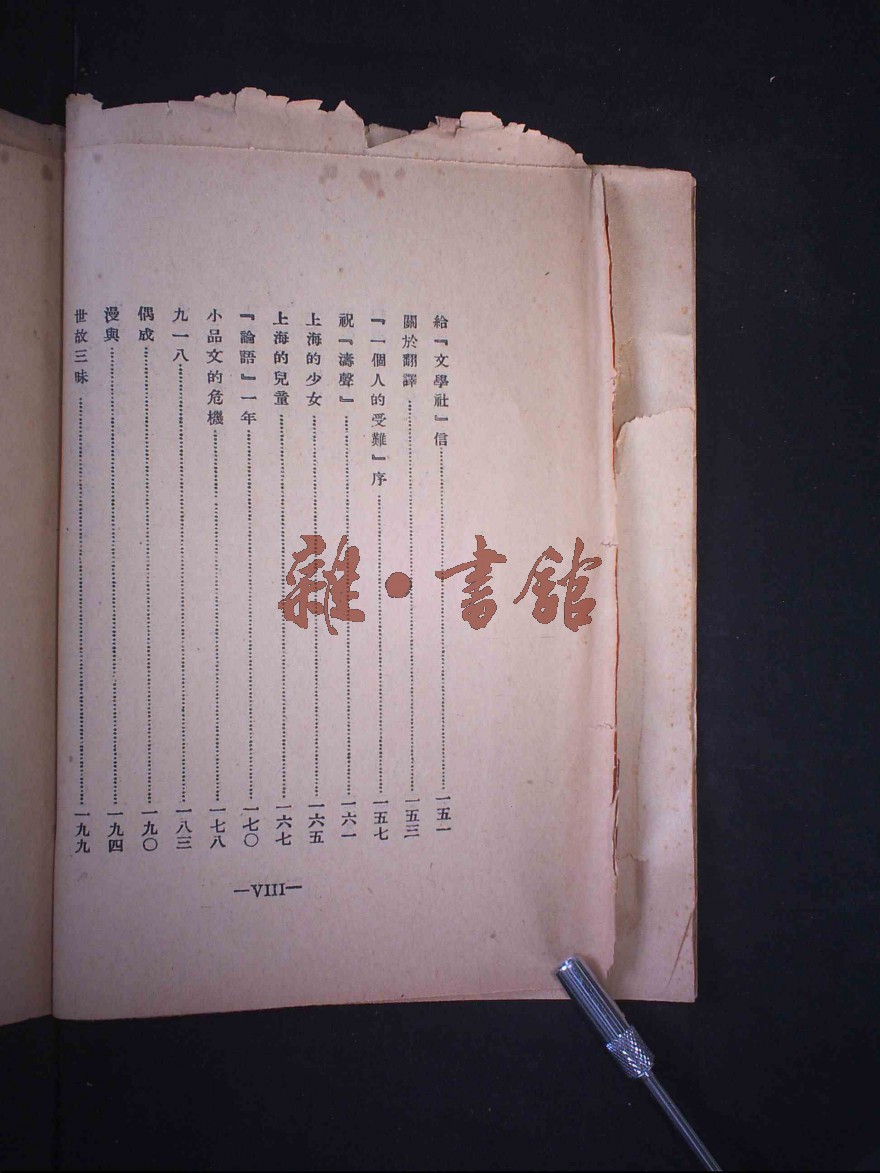 給『文學社』信……一五一
關於翻譯……一五三
『一個人的受難』序……一五七
祝『濤聲』……一六一
上海的少女……一六五
上海的兒童……一六七
『論語』一年……一七〇
小品文的危機……一七八
九一八……一八三
偶成……一九〇
漫與……一九四
世故三昧……一九九
—VIII—
雜·書館